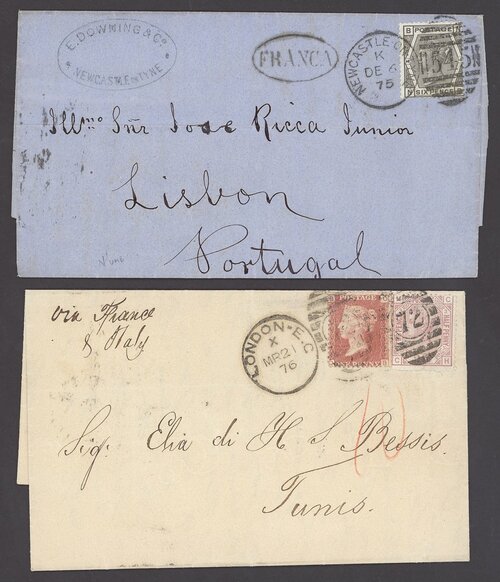 E. DOWNING & Co.
NEWCASTLE on TYNE
FRANCA
NEWCASTLE ON
K
DE 6
75
B POSTAGE
545
SIX PENCE
Illmo Snr Jose Ricca Junior
Lisbon
Portugal
via France
& Italy
LONDON - E.C
X
MR 21
76
POSTAGE
72
10
Sig. Elia di H. S. Bessis.
Tunis.